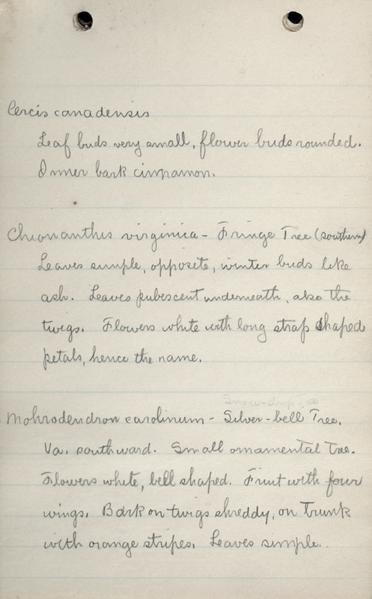 Cercis canadensis
Leaf buds very small, flower buds rounded.
Inner bark cinnamon.
Chionanthis virginica - Fringe Tree (southern)
Leaves simple, opposite, winter buds like
ash. Leaves pubescent underneath, also the
twigs. Flowers white with long strap shaped
petals, hence the name.
Snow-drop
Mohrodendron carolinum - Silver-bell Tree.
Va. southward. Small ornamental tree.
Flowers white, bell shaped. Fruit with four
wings. Bark on twigs shreddy, on trunk
with orange stripes. Leaves simple.